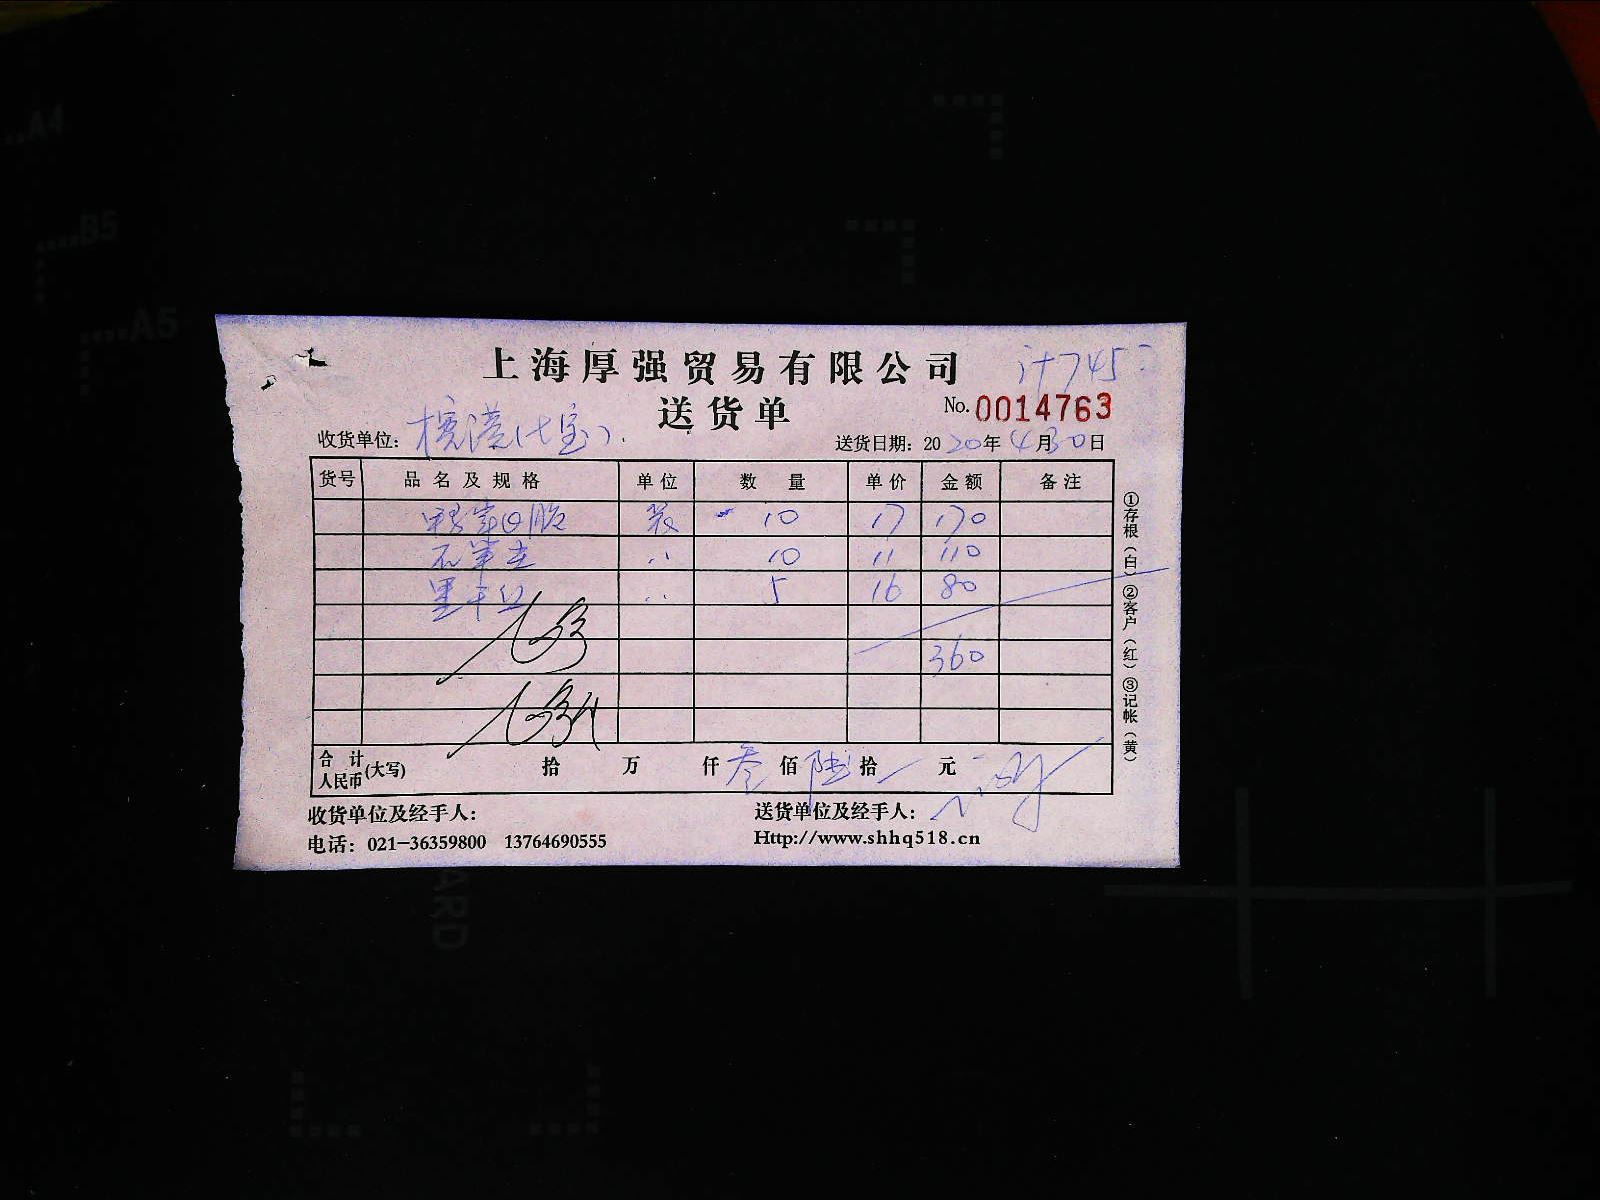 上海厚强贸易有限公司
计745
送货单
No. 0014763
收货单位：
送货日期：2020年4月30日
货号 品名及规格 单位 数量 单价 金额 备注
10 17 170
10 11 110
黑 5 16 80
360
合计人民币(大写) 拾 万 仟 叁 佰 陆 拾 元
收货单位及经手人：
送货单位及经手人：
电话：021-36359800 13764690555
Http://www.shhq518.cn
①存根(白)②客户(红)③记帐(黄)
A4
B5
A5
ARD